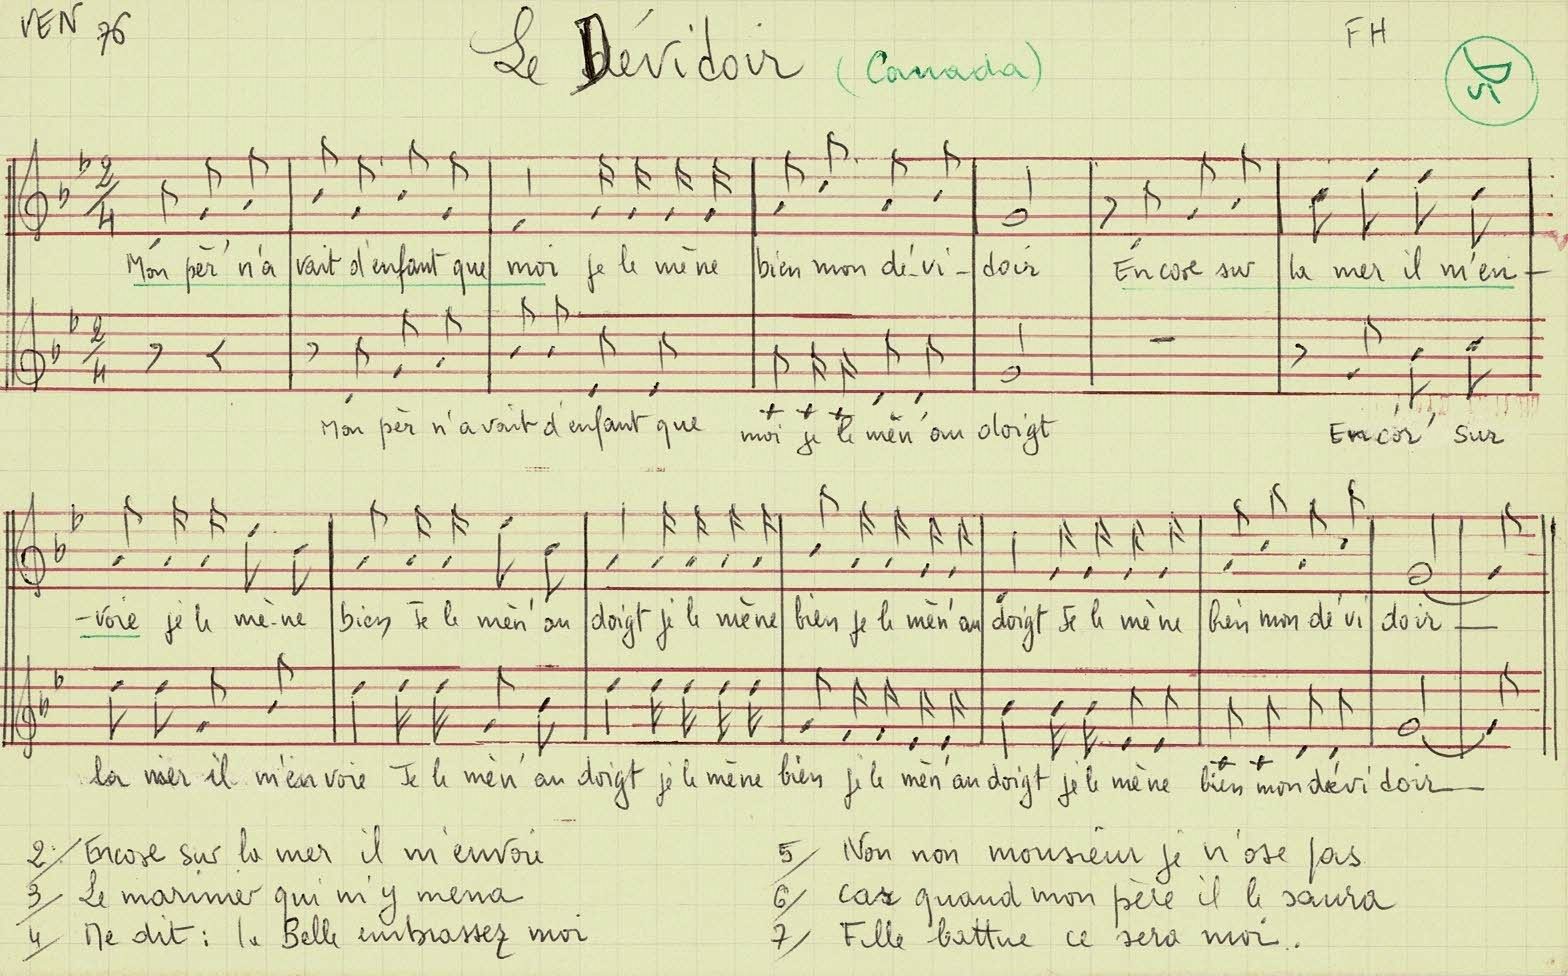 VEN 76
Le Dévidoir (Canada)
FH
2/4
Mon pèr' n'a vait d'enfant que moi je le mène bien mon dé-vi-doir Encore sur la mer il m'en-
2/4
Mon pèr n'avait d'enfant que moi je le mèn' au doigt Encor' sur
-voie je le mè-ne bien Je le mèn' au doigt je le mène bien je le mèn' au doigt Je le mène bien mon dé vi doir
la mer il m'en voie Je le mèn' au doigt je le mène bien je le mèn' au doigt je le mène bien mon dévi doir
2/ Encore sur la mer il m'envoie
3/ Le marinier qui m'y mena
4/ Me dit : la Belle embrassez moi
5/ Non non monsieur je n'ose pas
6/ Car quand mon père il le saura
7/ Fille battue ce sera moi..